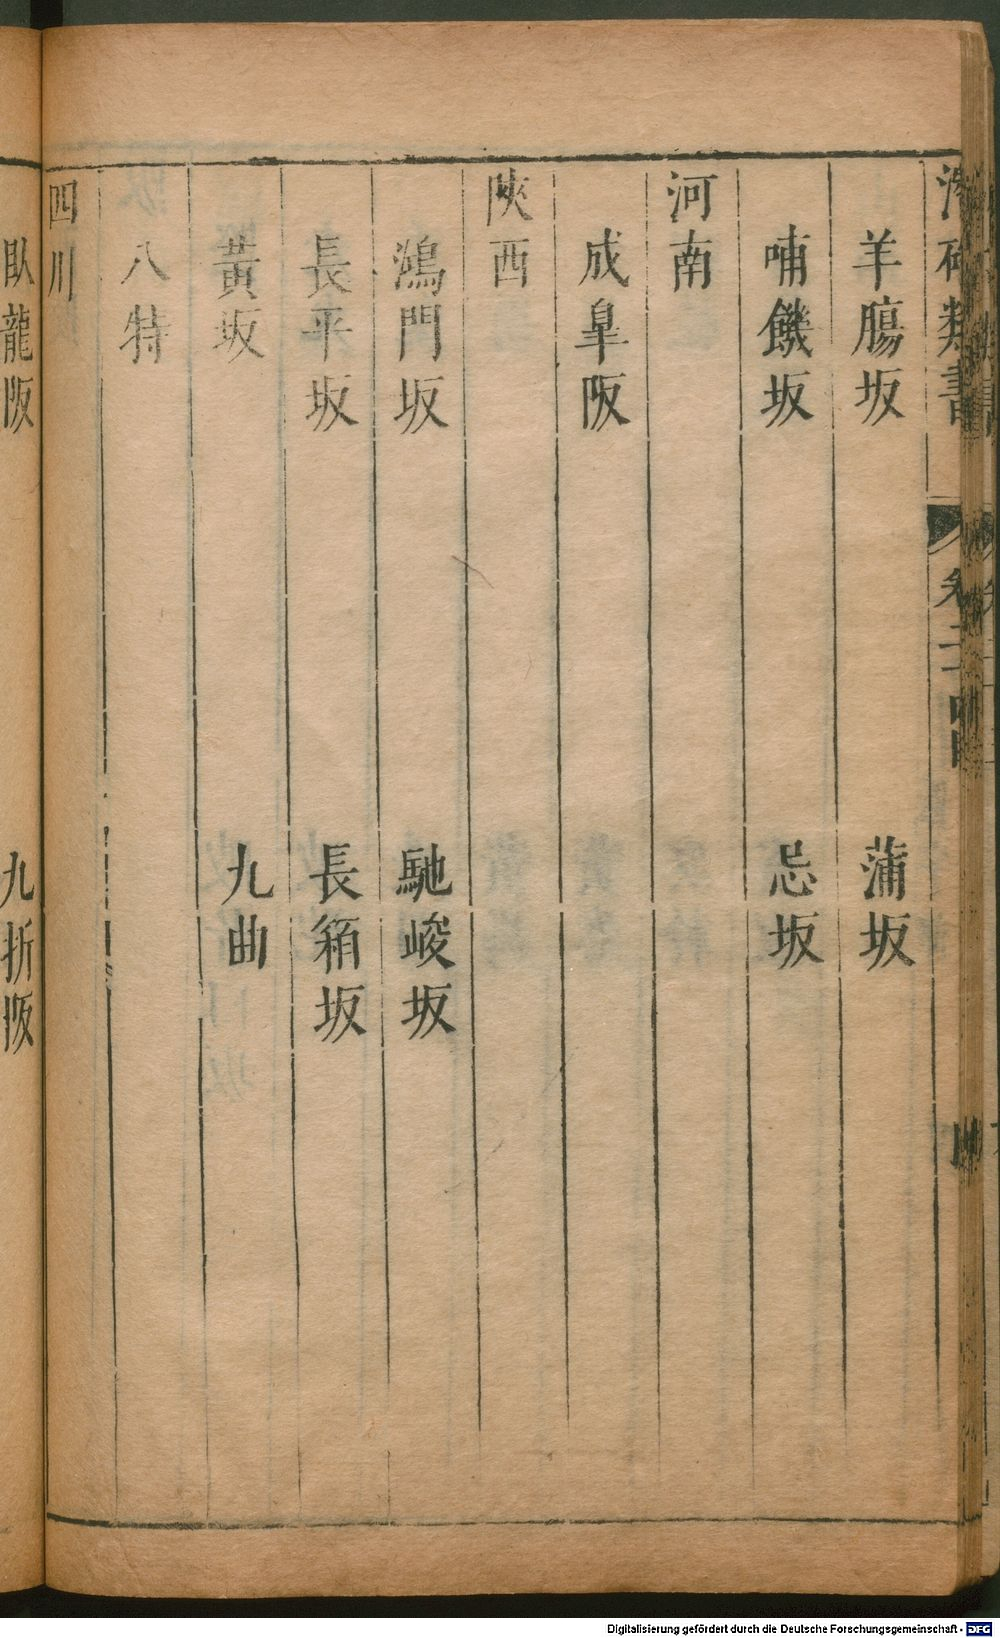 羊腸坂 蒲坂
哺饑坂 忌坂
河南
成臯阪
陝西
鴻門坂 馳峻坂
長平坂 長箱坂
黃坂 九曲
八特
四川
臥龍阪 九折阪
Digitalisierung gefördert durch die Deutsche Forschungsgemeinschaft - DFG